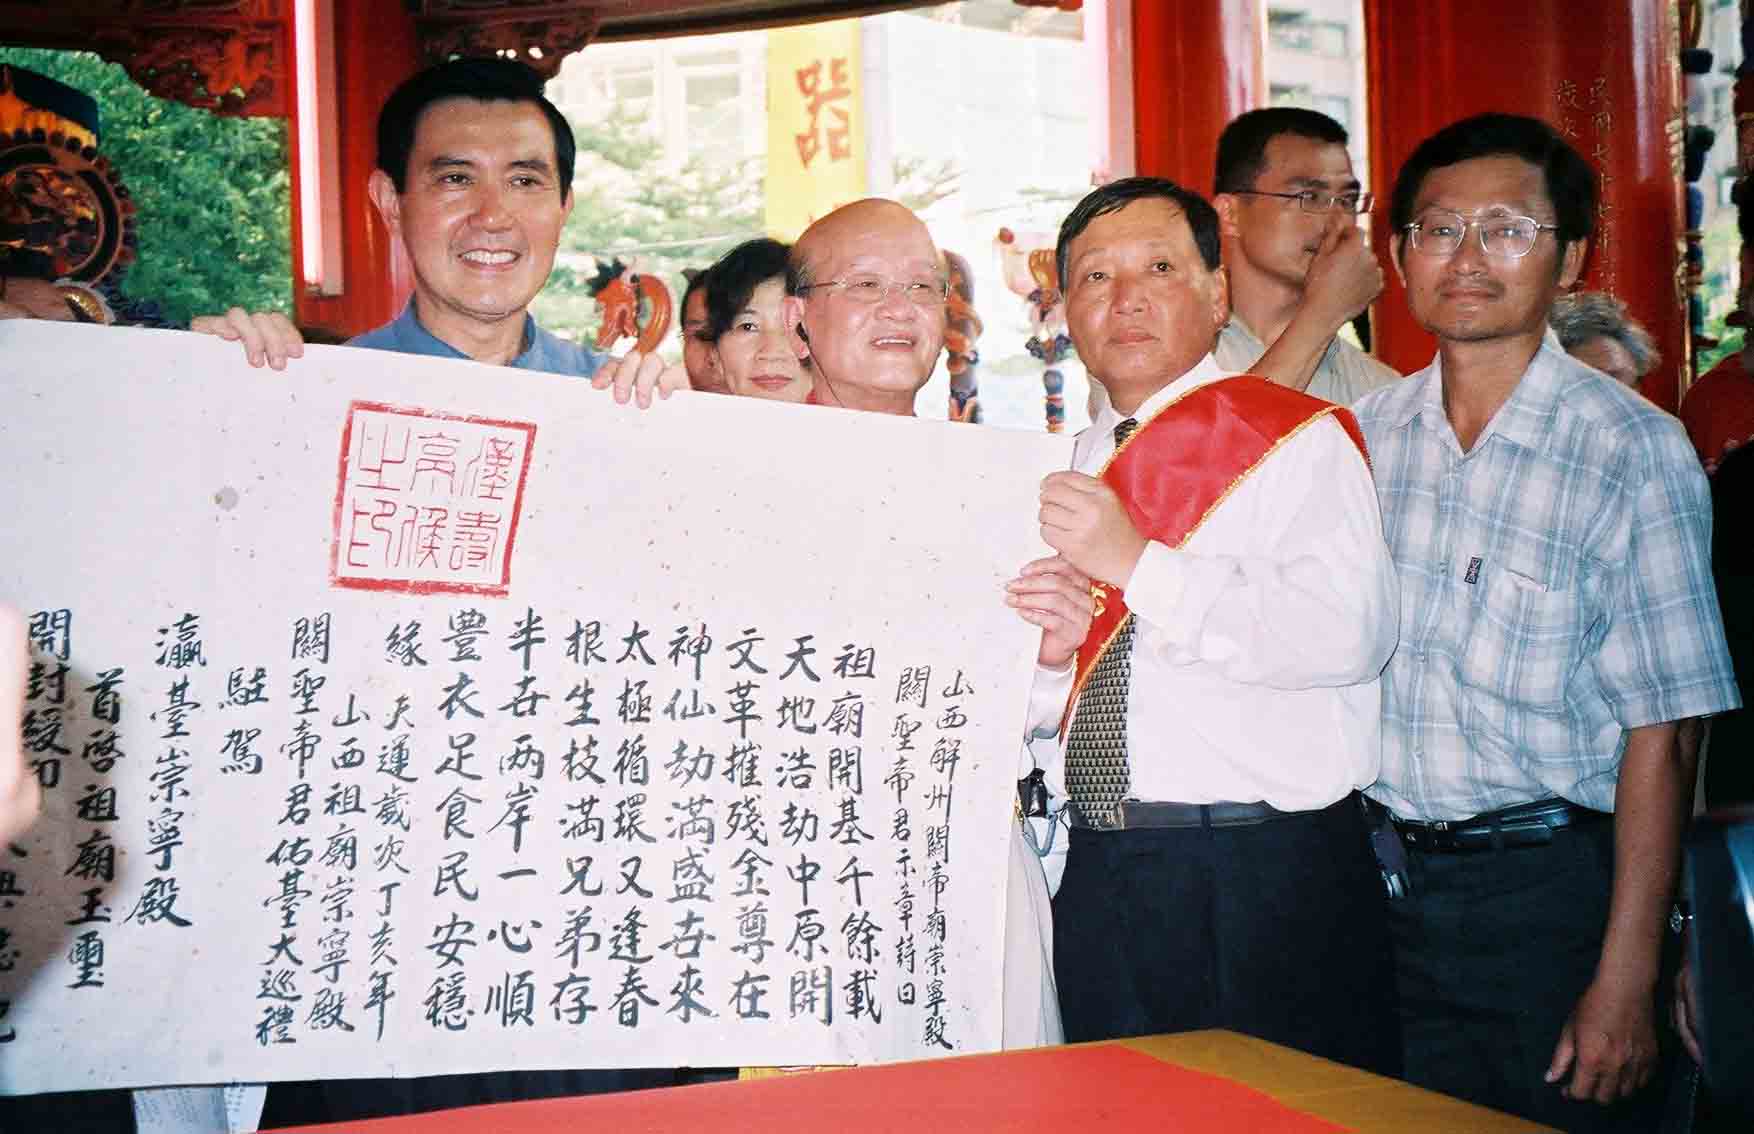 山西解州關帝廟崇寧殿
關聖帝君示章詩曰
祖廟開基千餘載
天地浩劫中原開
文革摧殘金尊在
神仙劫滿盛世來
太極循環又逢春
根生枝滿兄弟存
半世兩岸一心順
豐衣足食民安穩
緣
天運歲次丁亥年
山西祖廟崇寧殿
關聖帝君佑臺大巡禮
駐駕
瀛臺崇寧殿
首啓祖廟玉璽
開封綬印
漢壽
亭侯
之印
器
民國七十七年
歲次